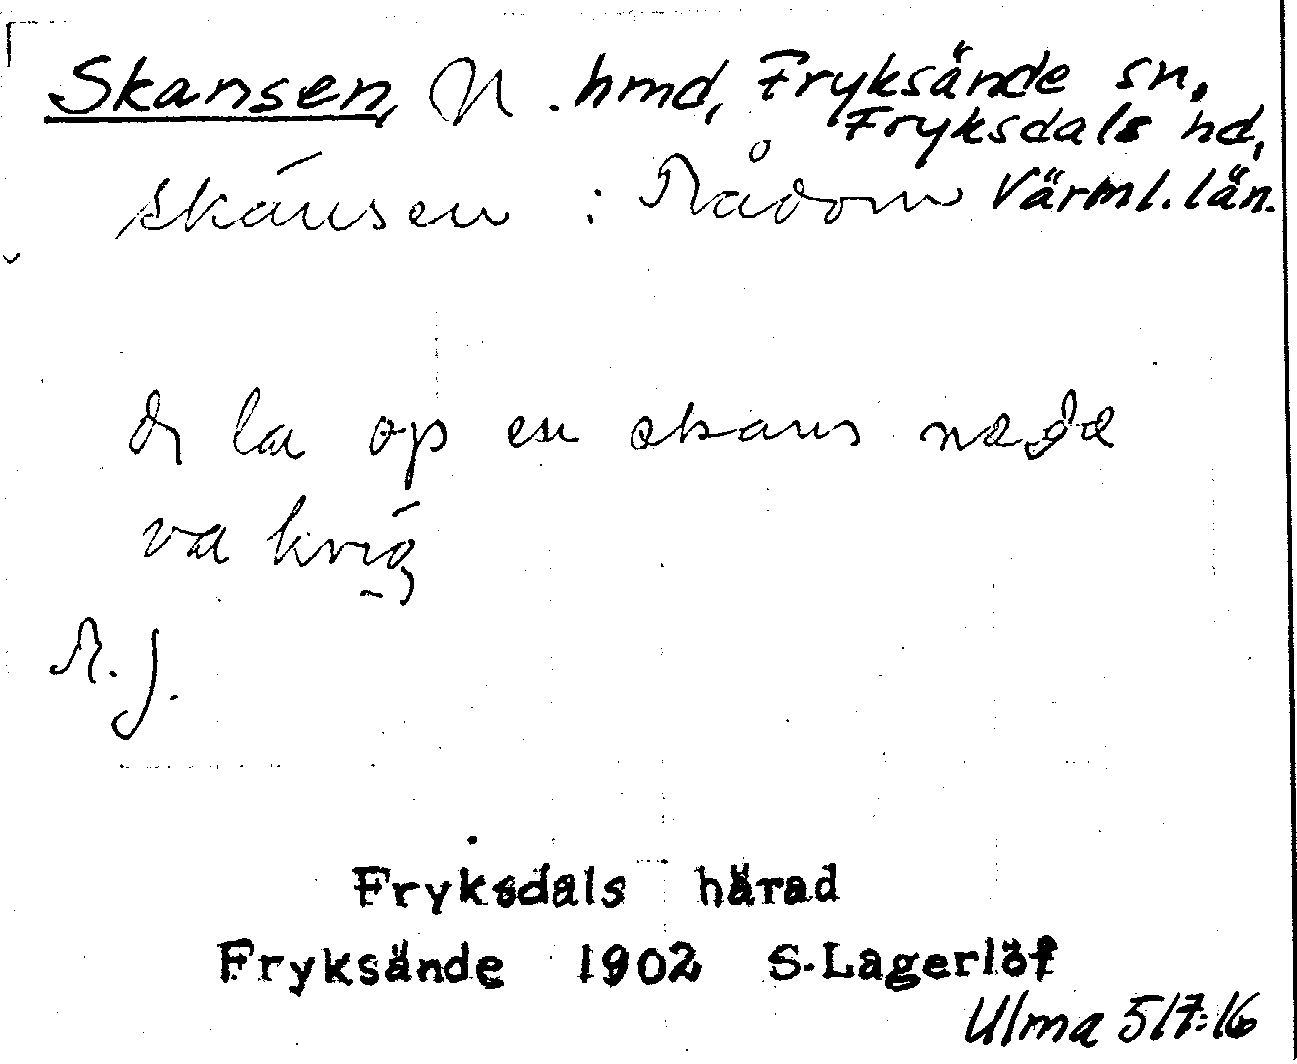 Skansen, N. hmd, Fryksände sn,
Fryksdals hd,
skánsen : Rådom Värml. län.
di la op en skans næ dæ
va krig
N. J.
Fryksdals härad
Fryksände 1902 S. Lagerlöf
Ulma 517:16